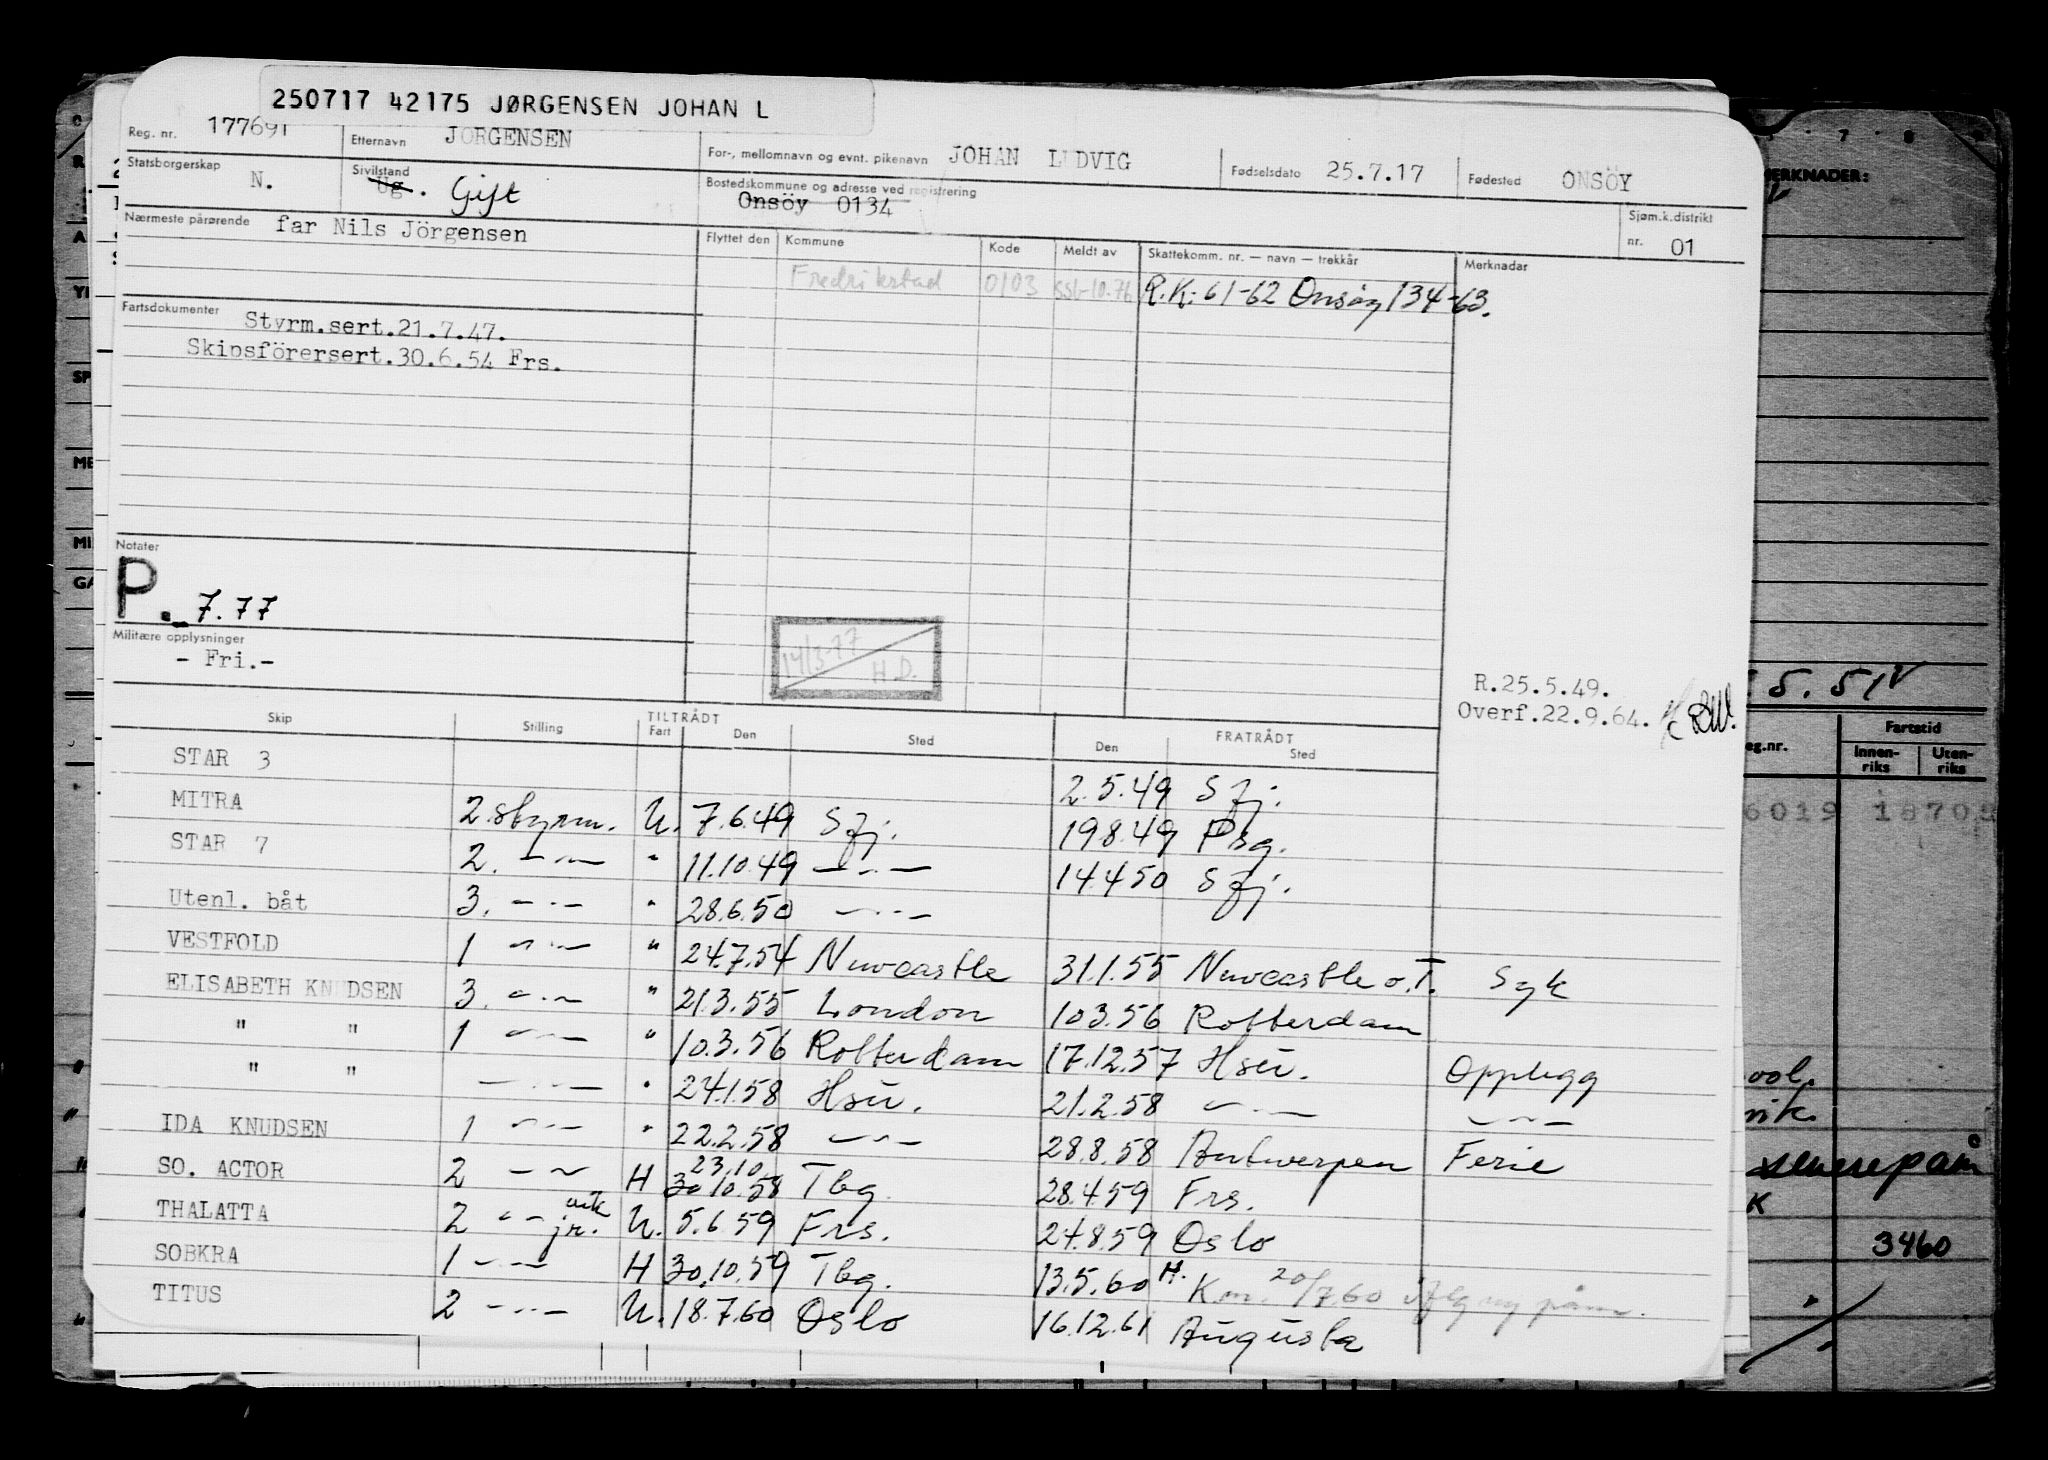 250717 42175 JØRGENSEN JOHAN L
Reg. nr. 177691 Etternavn JORGENSEN For-, mellomnavn og evnt. pikenavn JOHAN LUDVIG Fødselsdato 25.7.17 Fødested ONSÖY
Statsborgerskap N. Sivilstand Ug. Gift Bostedskommune og adresse ved registrering Onsöy 0134 Sjøm.k.distrikt nr. 01
Nærmeste pårørende far Nils Jörgensen Flyttet den Kommune Kode Meldt av Skattekomm. nr. — navn — trekkår Merknader
Fredrikstad 0103 ssb-10.76 R.K: 61-62 Onsøy 134-63.
Fartsdokumenter Styrm.sert.21.7.47.
Skipsförersert.30.6.54 Frs.
Notater
P. 7.77
Militære opplysninger
- Fri.-
14/3-77 H.D.
R.25.5.49.
Overf.22.9.64.
Skip Stilling TILTRÅDT Fart Den Sted FRATRÅDT Den Sted
STAR 3 2.5.49 Sfj.
MITRA 2. styrm. U. 7.6.49 Sfj. 19.8.49 Psg.
STAR 7 2. —"— " 11.10.49 —"— 14.4.50 Sfj.
Utenl. båt 3. —"— " 28.6.50 —"—
VESTFOLD 1 —"— " 24.7.54 Newcastle 31.1.55 Newcastle o.T. Syk
ELISABETH KNUDSEN 3. —"— " 21.3.55 London 10.3.56 Rotterdam
" " 1 —"— " 10.3.56 Rotterdam 17.12.57 Hsu. Opplegg
" " —"— " 24.1.58 Hsu. 21.2.58 —"— —"—
IDA KNUDSEN 1 —"— " 22.2.58 —"— 28.8.58 Antwerpen Ferie
SO. ACTOR 2 —"— H 23.10. 30.10.58 Tbg. 28.4.59 Frs.
THALATTA 2 —"— jr. vik U. 5.6.59 Frs. 24.8.59 Oslo
SOBKRA 1 —"— H 30.10.59 Tbg. 13.5.60 H. K.m. 20/7.60 iflg ny påm.
TITUS 2 —"— U. 18.7.60 Oslo 16.12.61 Augusta
7 8
MERKNADER:
5.51
eg.nr. Fartstid
Innenriks Utenriks
6019 1870
senere påm
K
3460